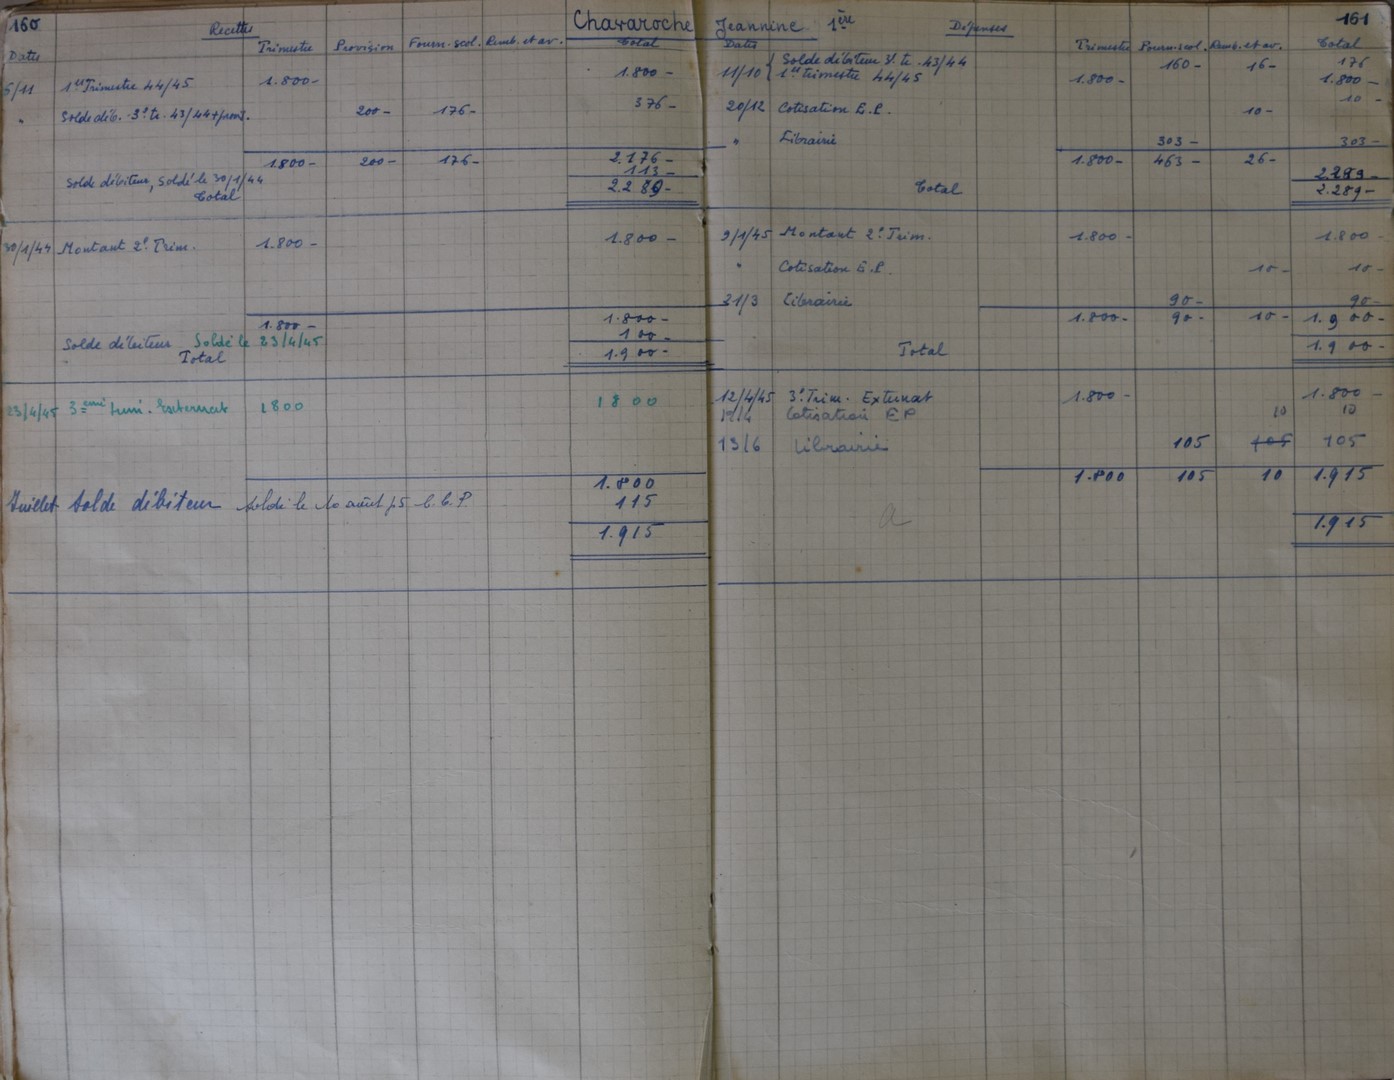 160 Recettes Chavaroche
Dates Trimestre Provision Fourn. scol. Remb. et av. Total
5/11 1er Trimestre 44/45 1.800- 1.800-
" Solde déb. 3e te. 43/44 + prov. 200- 176- 376-
1.800- 200- 176- 2.176-
Solde débiteur, Soldé le 30/1/44 113-
Total 2.289-
30/1/44 Montant 2e Trim. 1.800- 1.800-
1.800- 1.800-
Solde débiteur Soldé le 23/4/45 100-
Total 1.900-
23/4/45 3eme Externat 1800 1800
1.800
Juillet Solde débiteur soldé le 10 août 45 C.C.P. 115
1.915
Jeannine 1ère Dépenses 161
Dates Trimestre Fourn. scol. Remb. et av. Total
11/10 { Solde débiteur 3e te. 43/44 160- 16- 176
1er trimestre 44/45 1.800- 1.800-
20/12 Cotisation E.P. 10- 10-
" Librairie 303- 303-
1.800- 463- 26- 2.289-
Total 2.289-
9/1/45 Montant 2e Trim. 1.800- 1.800-
" Cotisation E.P. 10- 10-
21/3 Librairie 90- 90-
1.800- 90- 10- 1.900-
Total 1.900-
12/4/45 3e Trim. Externat 1.800- 1.800-
12/4 Cotisation EP 10 10
13/6 Librairie 105 105 105
1.800 105 10 1.915
a
1.915